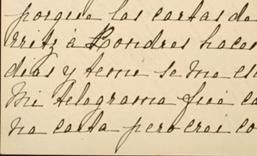 porque las cartas de
rritz á Londres hacen
dias y temo se me es
mi telegrama fué co
na carta pero crei co